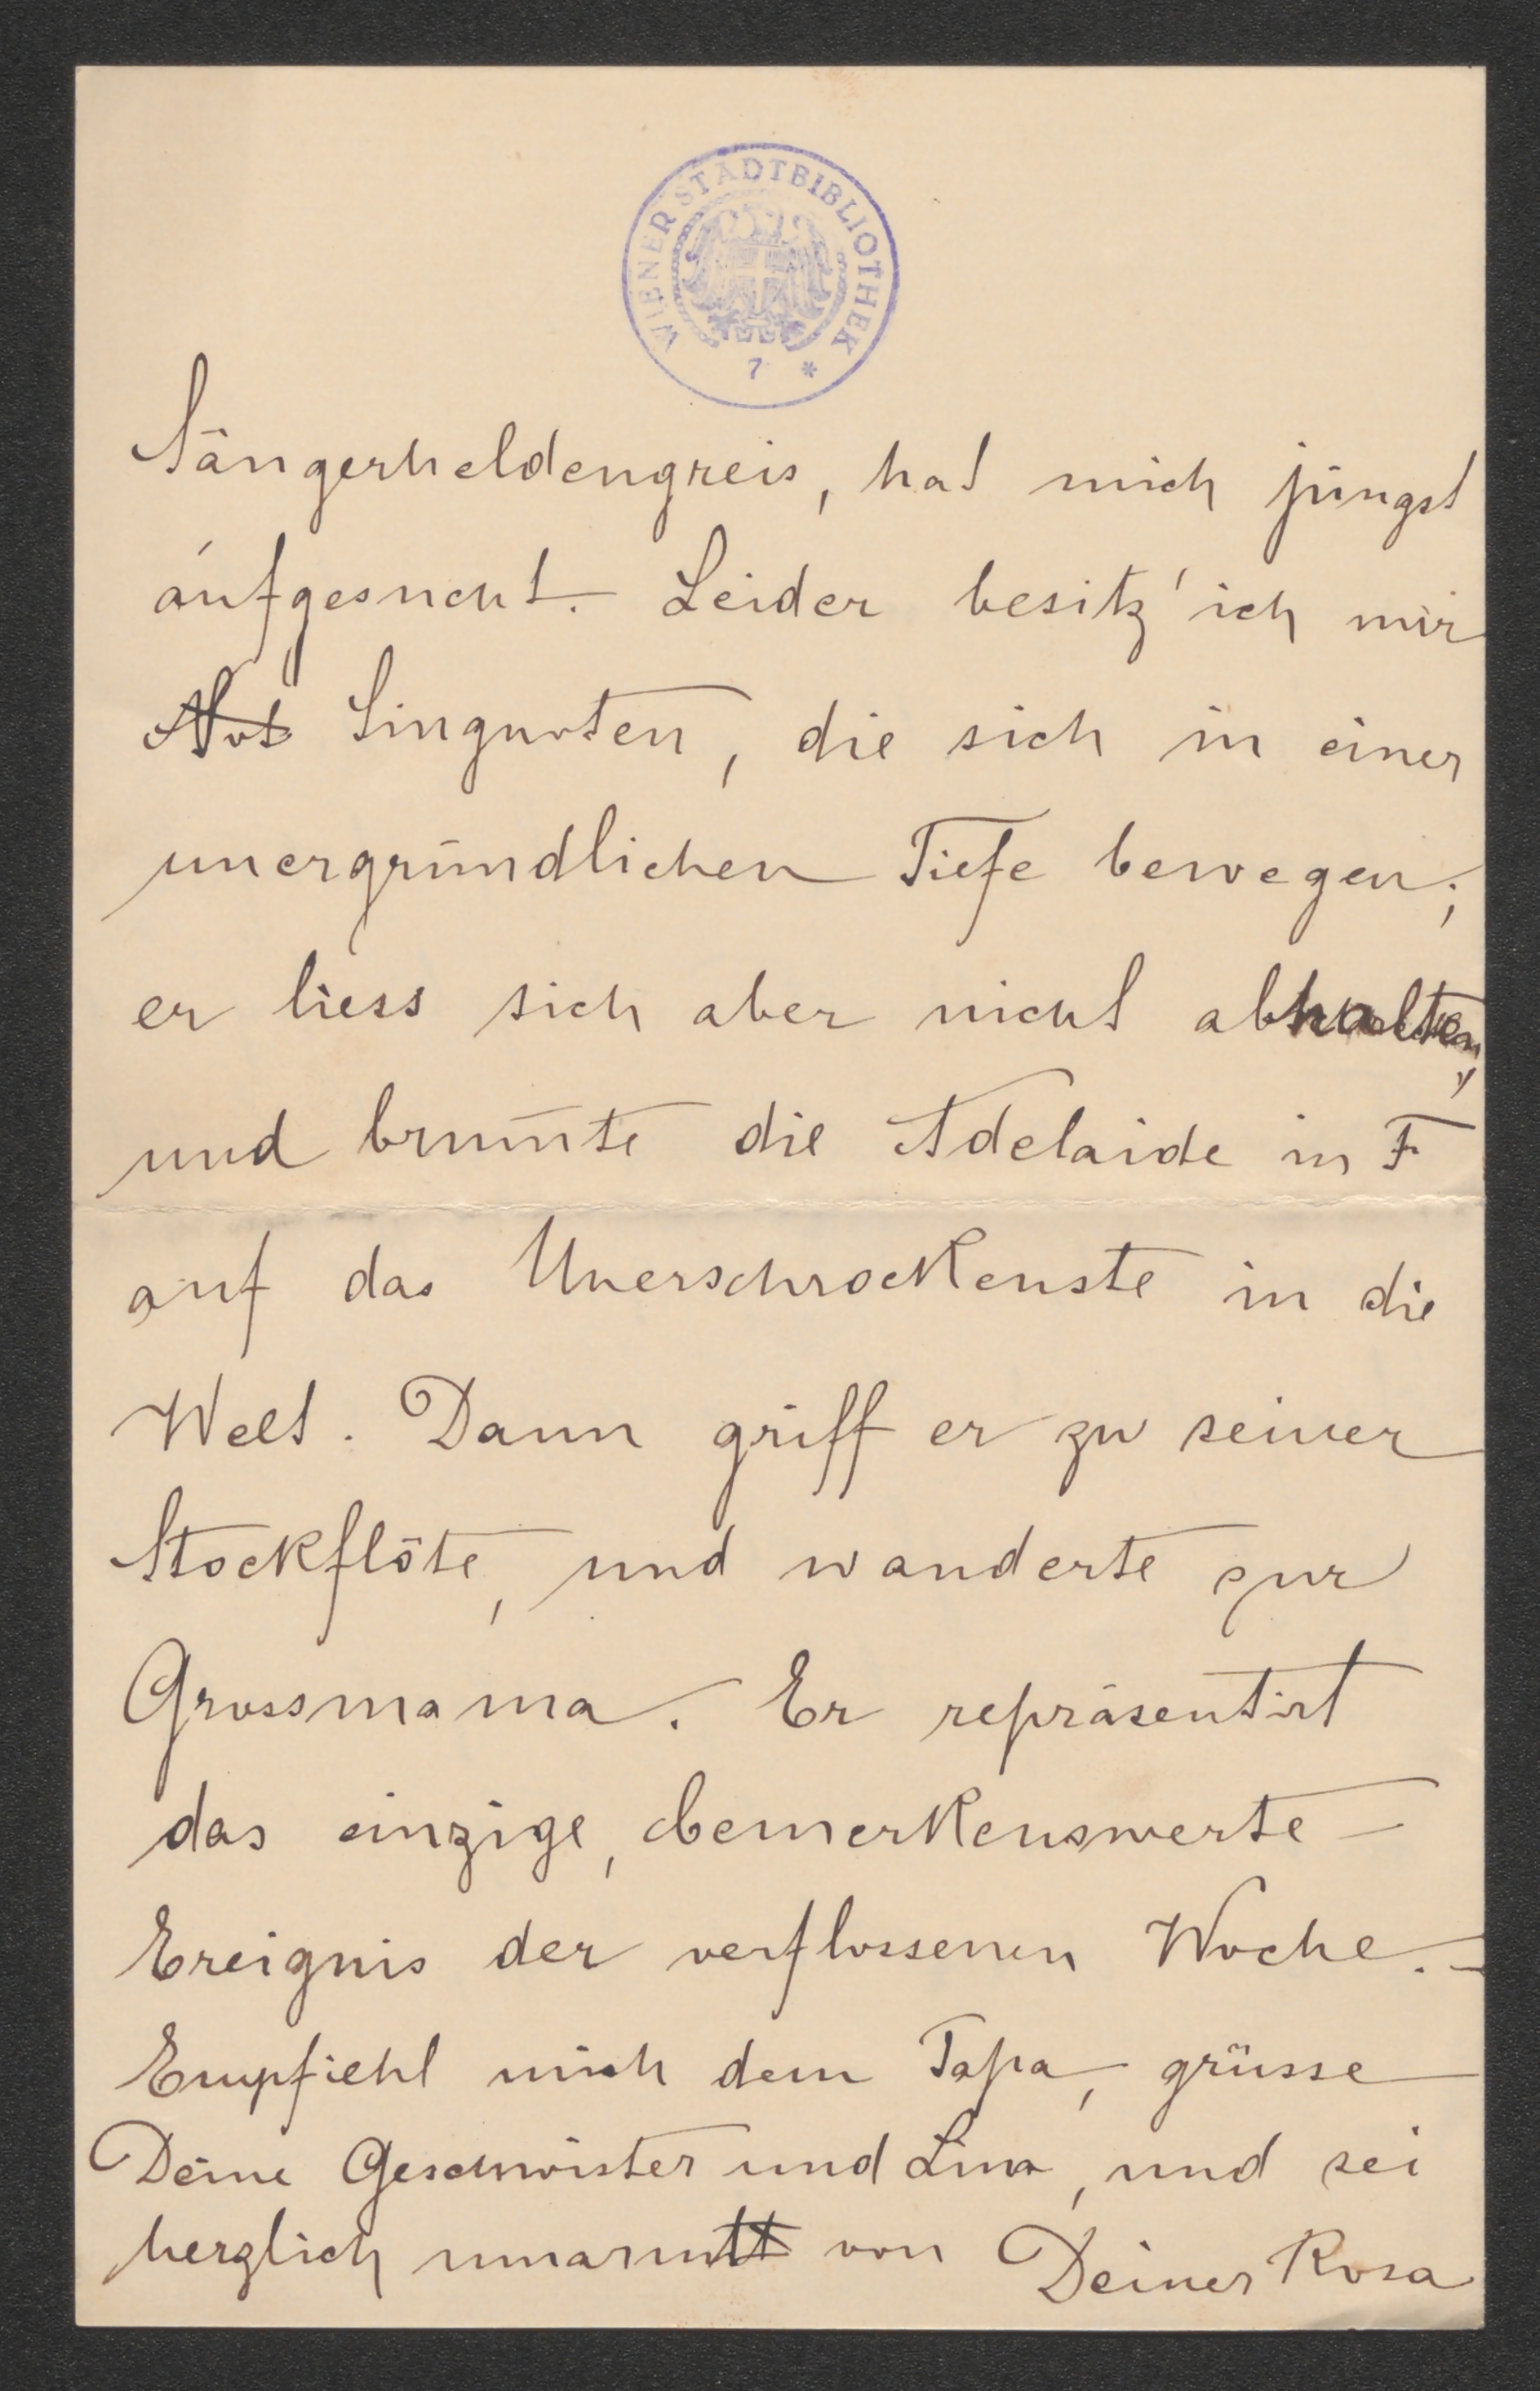 WIENER STADTBIBLIOTHEK
7 *
Sängerheldengreis, hat mich jüngst
aufgesucht. Leider besitz' ich nur
Not Singnoten, die sich in einer
unergründlichen Tiefe bewegen;
er liess sich aber nicht abhalten,
und brum̄te die Adelaide in F
auf das Unerschrockenste in die
Welt. Dann griff er zu seiner
Stockflöte, und wanderte zur
Grossmama. Er repräsentirt
das einzige, bemerkenswerte
Ereignis der verflossenen Woche. –
Empfiehl mich dem Papa, grüsse
Deine Geschwister und Lina, und sei
herzlich umarmt von Deiner Rosa